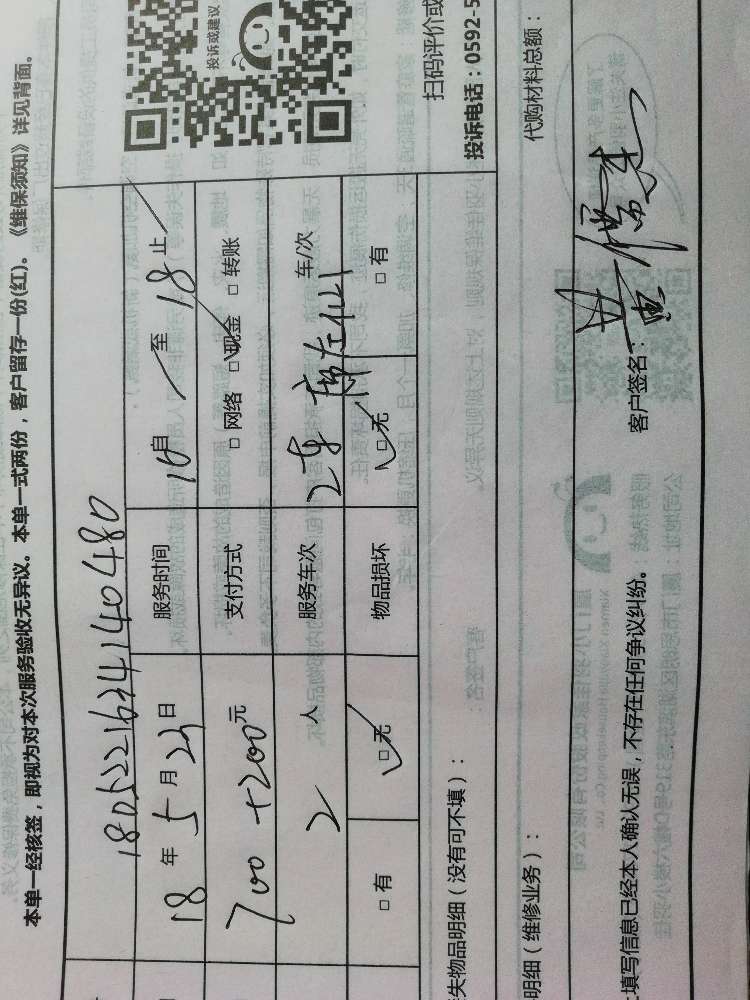 本单一经核签，即视为对本次服务验收无异议。本单一式两份，客户留存一份(红)。《维保须知》详见背面。
180522163414040480
18年5月23日 服务时间 16时 至 18止
700+200元 支付方式 □网络 □现金 □转账
2人 服务车次 2车 车/次
□有 □无 物品损坏 □无 □有
投诉或建议
扫码评价或
失物品明细（没有可不填）： 投诉电话：0592-5
明细（维修业务）： 代购材料总额：
填写信息已经本人确认无误，不存在任何争议纠纷。 客户签名：